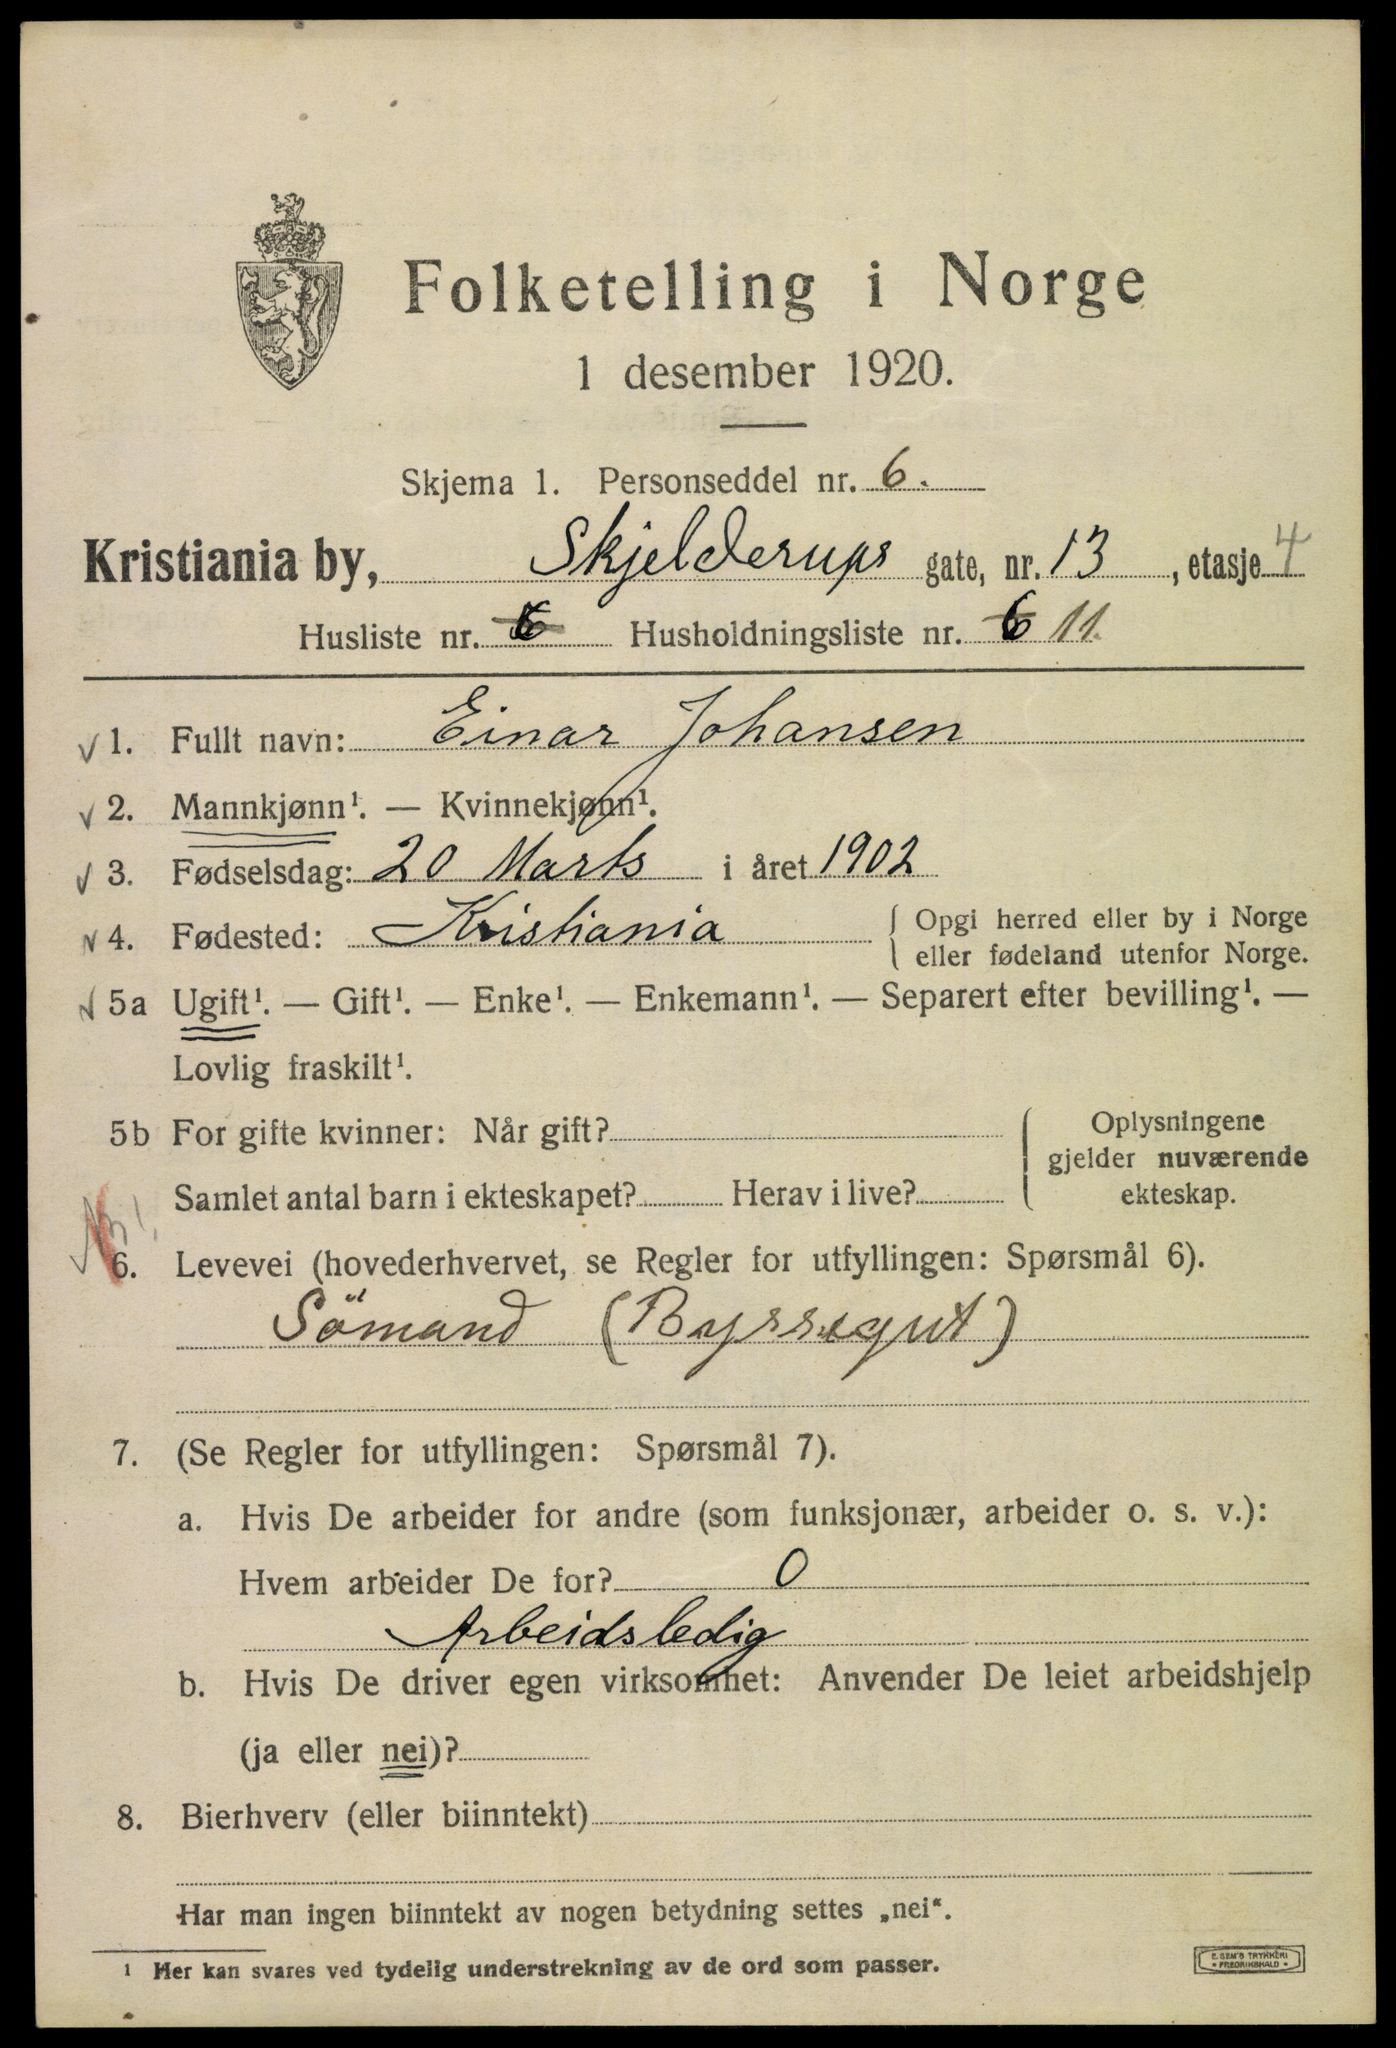 Folketelling i Norge
1 desember 1920.
Skjema 1. Personseddel nr. 6.
Kristiania by, Skjelderups gate, nr. 13, etasje 4
Husliste nr. 6 Husholdningsliste nr. 6 11.
1. Fullt navn: Einar Johansen
2. Mannkjønn¹. — Kvinnekjønn¹.
3. Fødselsdag: 20 Marts i året 1902
4. Fødested: Kristiania { Opgi herred eller by i Norge
eller fødeland utenfor Norge.
5a Ugift¹. — Gift¹. — Enke¹. — Enkemann¹. — Separert efter bevilling¹. —
Lovlig fraskilt¹.
5b For gifte kvinner: Når gift? { Oplysningene
gjelder nuværende
ekteskap.
Samlet antal barn i ekteskapet? Herav i live?
6. Levevei (hovederhvervet, se Regler for utfyllingen: Spørsmål 6).
Sömand (Byssegut)
7. (Se Regler for utfyllingen: Spørsmål 7).
a. Hvis De arbeider for andre (som funksjonær, arbeider o. s. v.):
Hvem arbeider De for? 0
Arbeidsledig
b. Hvis De driver egen virksomhet: Anvender De leiet arbeidshjelp
(ja eller nei)?
8. Bierhverv (eller biinntekt)
Har man ingen biinntekt av nogen betydning settes „nei“.
¹ Her kan svares ved tydelig understrekning av de ord som passer.
E. SEM'S TRYKKERI
• FREDRIKSHALD •